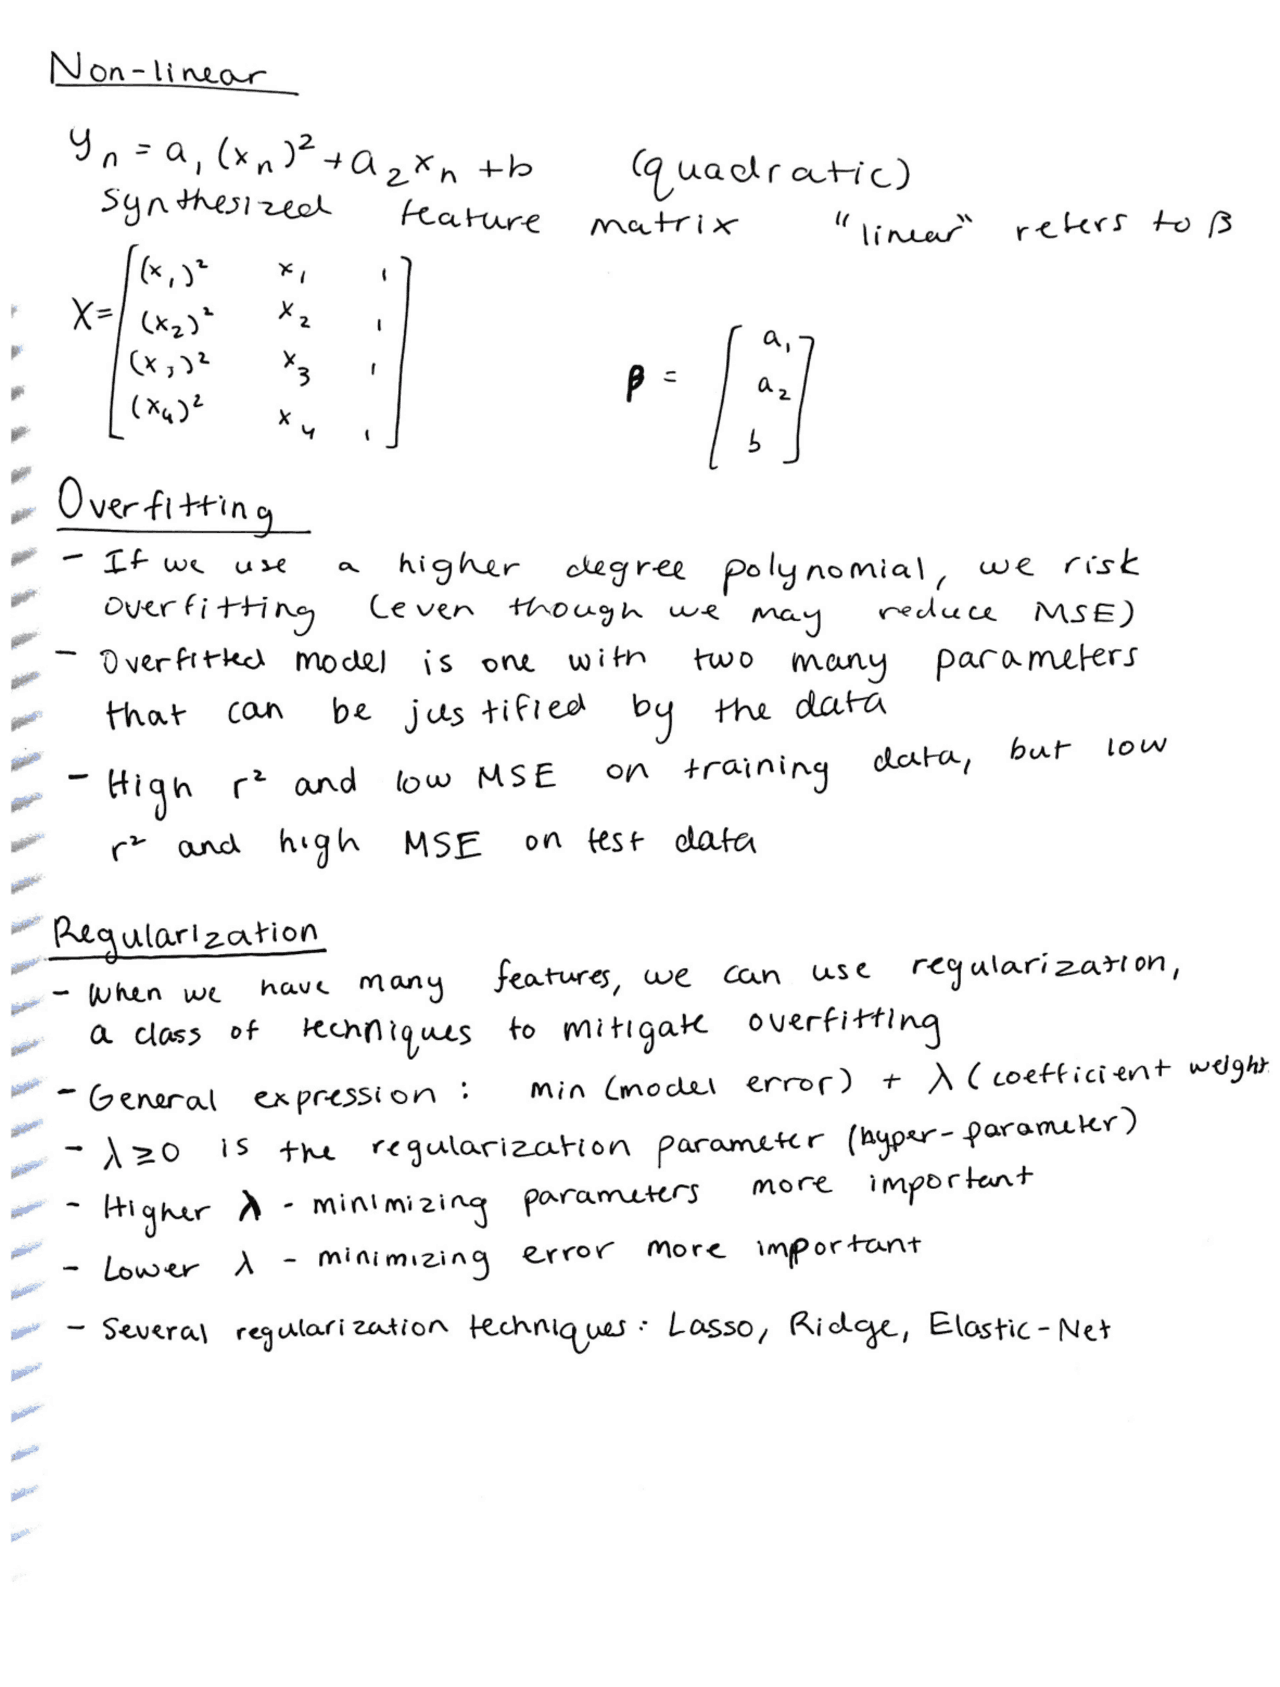 Non-linear
yₙ = a₁(xₙ)² + a₂xₙ + b (quadratic)
Synthesized feature matrix "linear" refers to β
X = [(x₁)² x₁ 1
(x₂)² x₂ 1
(x₃)² x₃ 1
(x₄)² x₄ 1]
β = [a₁
a₂
b]
Overfitting
- If we use a higher degree polynomial, we risk
overfitting (even though we may reduce MSE)
- Overfitted model is one with two many parameters
that can be justified by the data
- High r² and low MSE on training data, but low
r² and high MSE on test data
Regularization
- When we have many features, we can use regularization,
a class of techniques to mitigate overfitting
- General expression: min (model error) + λ (coefficient weight
- λ≥0 is the regularization parameter (hyper-parameter)
- Higher λ - minimizing parameters more important
- Lower λ - minimizing error more important
- Several regularization techniques: Lasso, Ridge, Elastic-Net